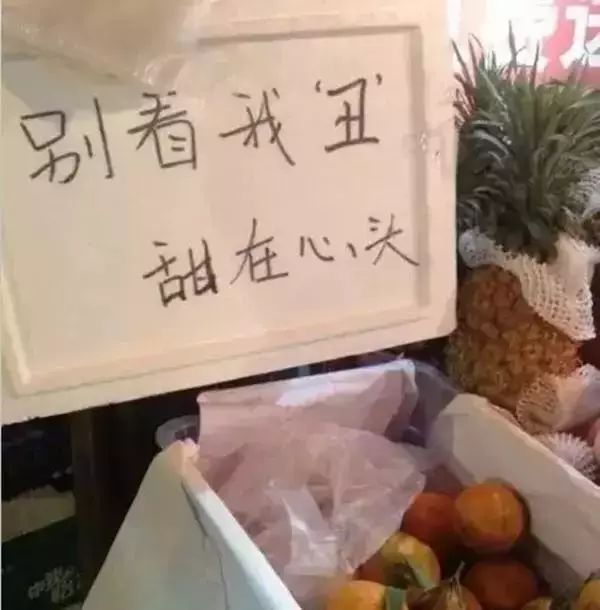 别看我'丑'
甜在心头